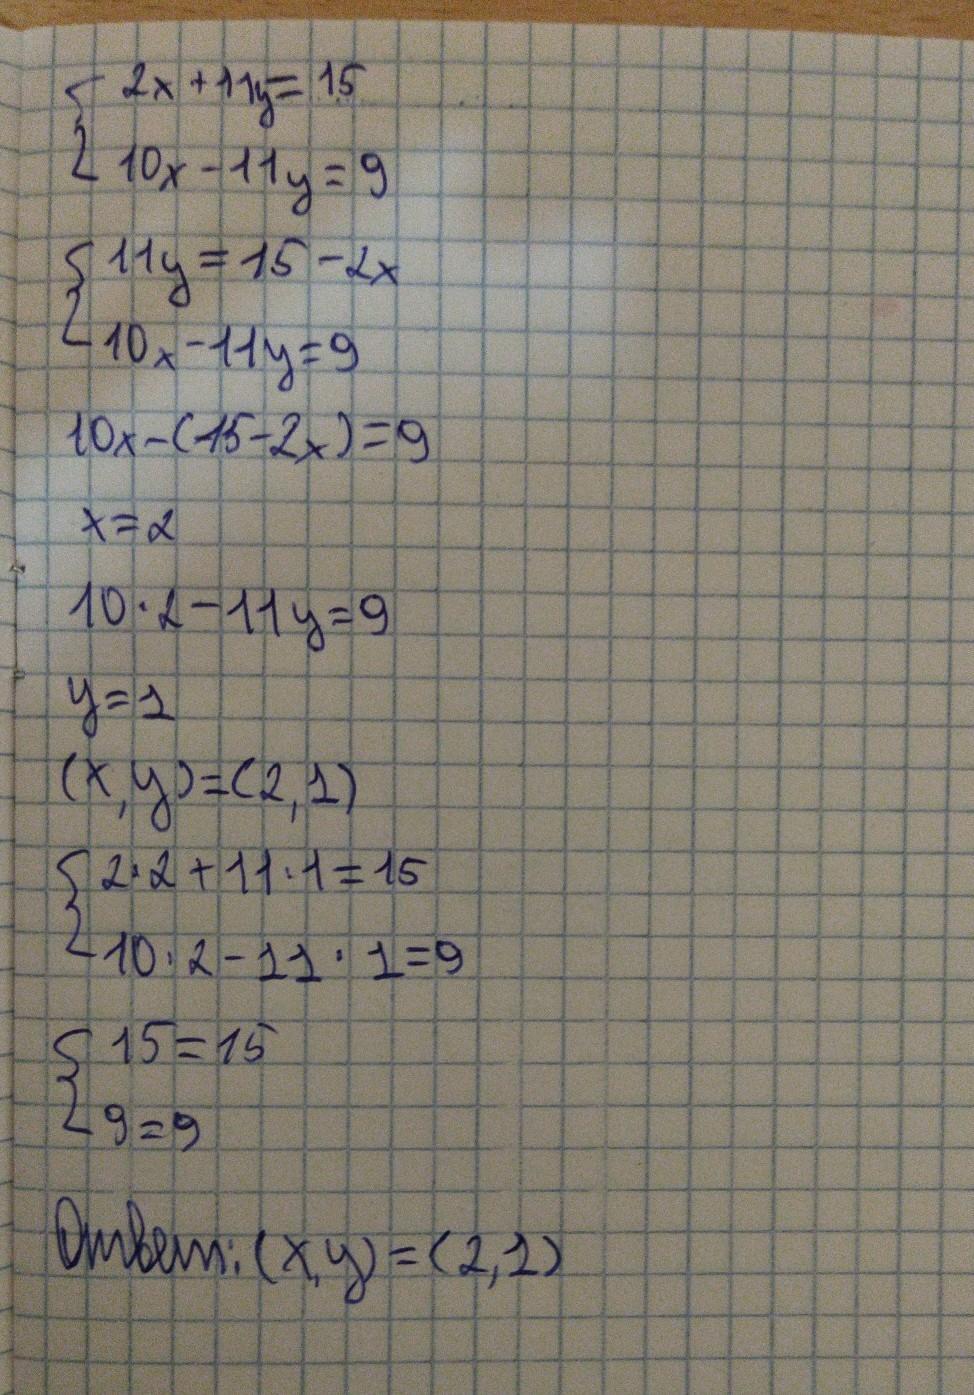 2x+11y=15
10x-11y=9
11y=15-2x
10x-11y=9
10x-(15-2x)=9
x=2
10·2-11y=9
y=1
(x,y)=(2,1)
2·2+11·1=15
10·2-11·1=9
15=15
9=9
Ответ: (x,y)=(2,1)